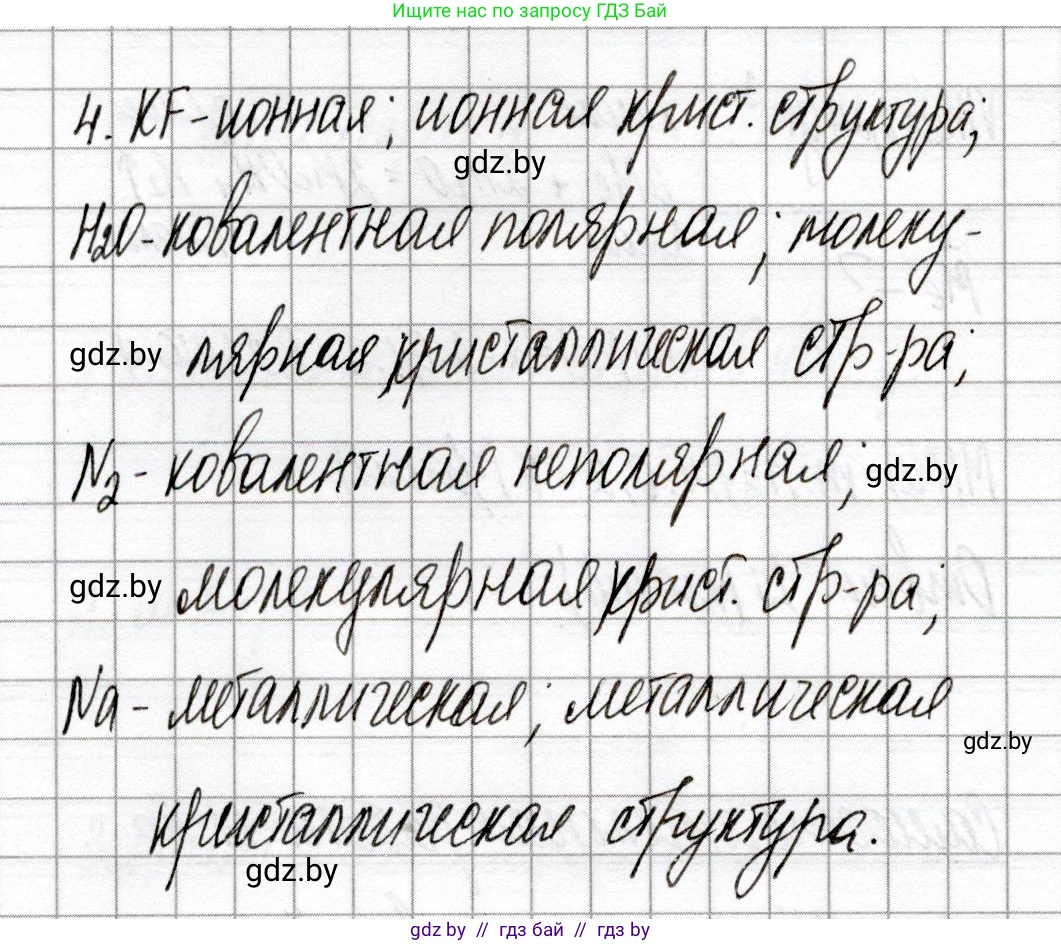 Ищите нас по запросу ГДЗ Бай
4. KF - ионная; ионная крист. структура;
gdz.by
H₂O - ковалентная полярная; молеку-
gdz.by лярная кристаллическая стр-ра;
N₂ - ковалентная неполярная; gdz.by
gdz.by молекулярная крист. стр-ра;
Na - металлическая; металлическая
gdz.by
кристаллическая структура.
gdz.by
gdz.by // гдз бай // гдз by